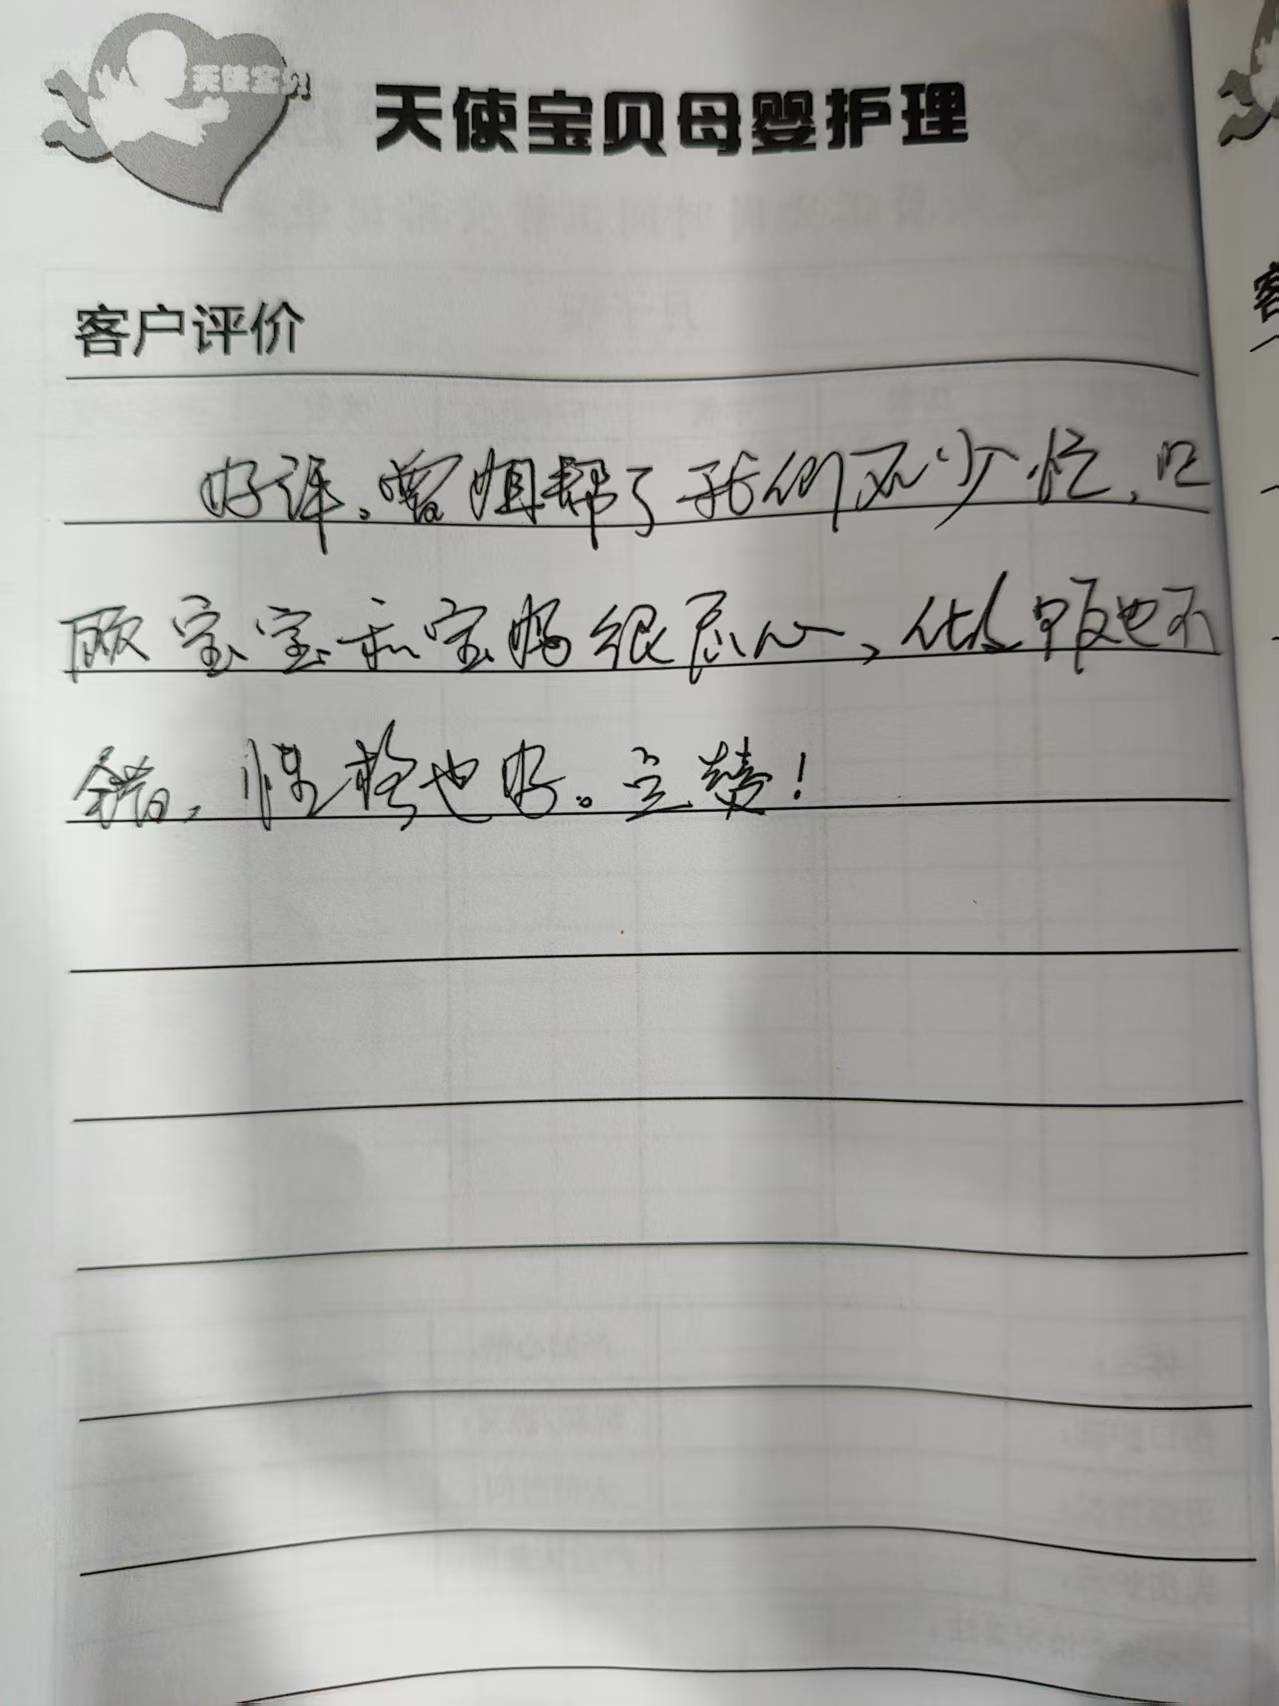 天使宝贝
天使宝贝母婴护理
客户评价
好评。曾姐帮了我们不少忙，照
顾宝宝和宝妈很尽心，做饭也不
错，性格也好。点赞！
客